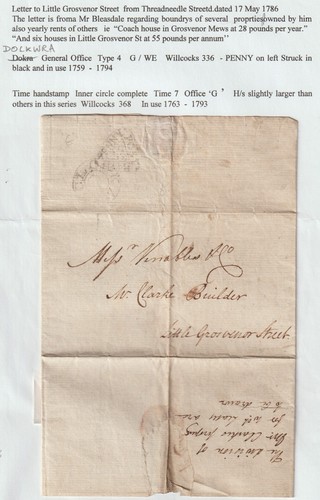 Letter to Little Grosvenor Street from Threadneedle Streetd.dated 17 May 1786
The letter is froma Mr Bleasdale regarding boundrys of several proprtiesowned by him
also yearly rents of others ie “Coach house in Grosvenor Mews at 28 pounds per year.”
“And six houses in Little Grosvenor St at 55 pounds per annum’’
DOLKWRA
Dokra General Office Type 4 G / WE Willcocks 336 - PENNY on left Struck in
black and in use 1759 - 1794
Time handstamp Inner circle complete Time 7 Office ‘G ’ H/s slightly larger than
others in this series Willcocks 368 In use 1763 - 1793
Messrs Venables & Co
Mr. Clarke Builder
Little Grosvenor Street
The division of
Mr. Clarkes
for wch Leases are
to be drawn